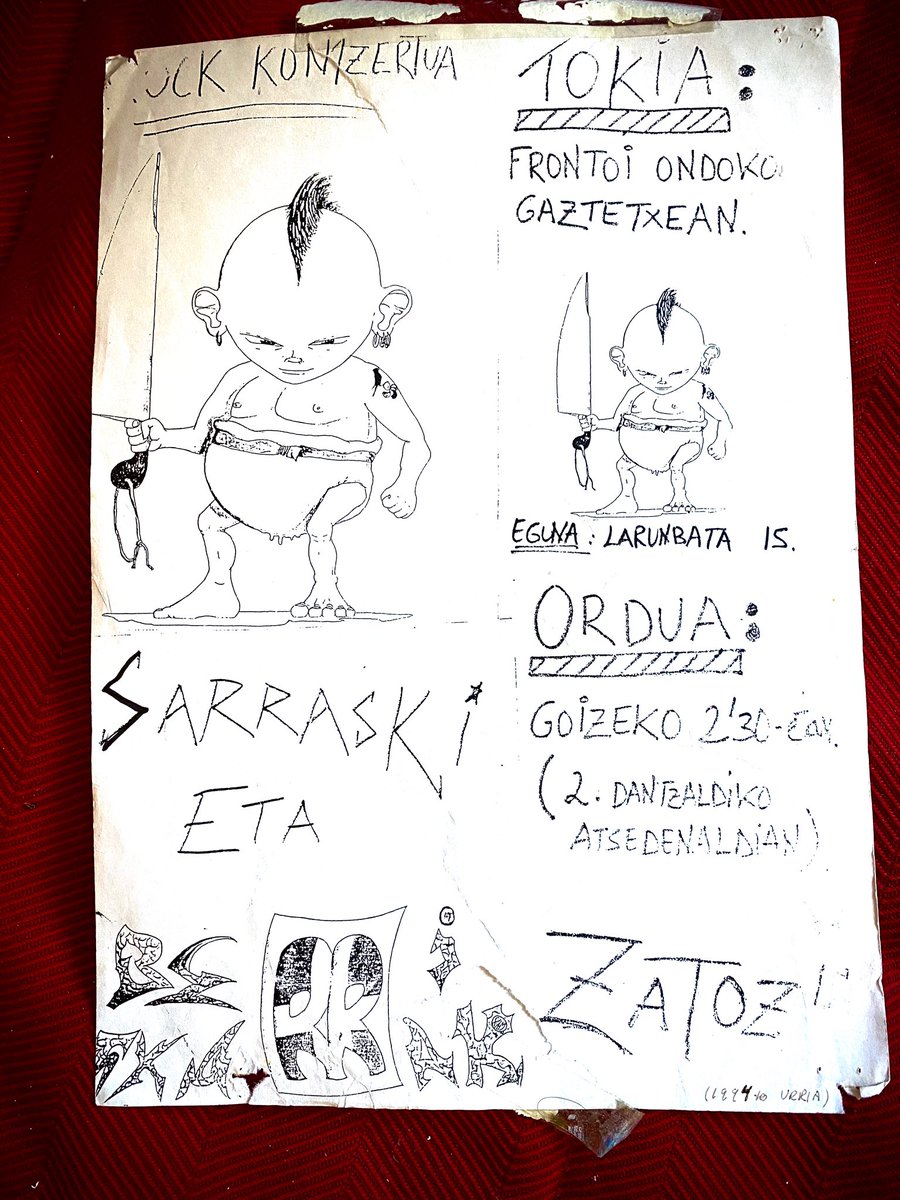 KONTZERTUA
SARRASKi
ETA
TOKiA:
FRONTOi ONDOKO
GAZTETXEAN.
EGUNA: LARUNBATA 15.
ORDUA:
GOiZEKO 2'30-Etan.
(2. DANTZALDiKO
ATSEDENALDiAN)
ZATOZ!!
(1994ko URRIA)